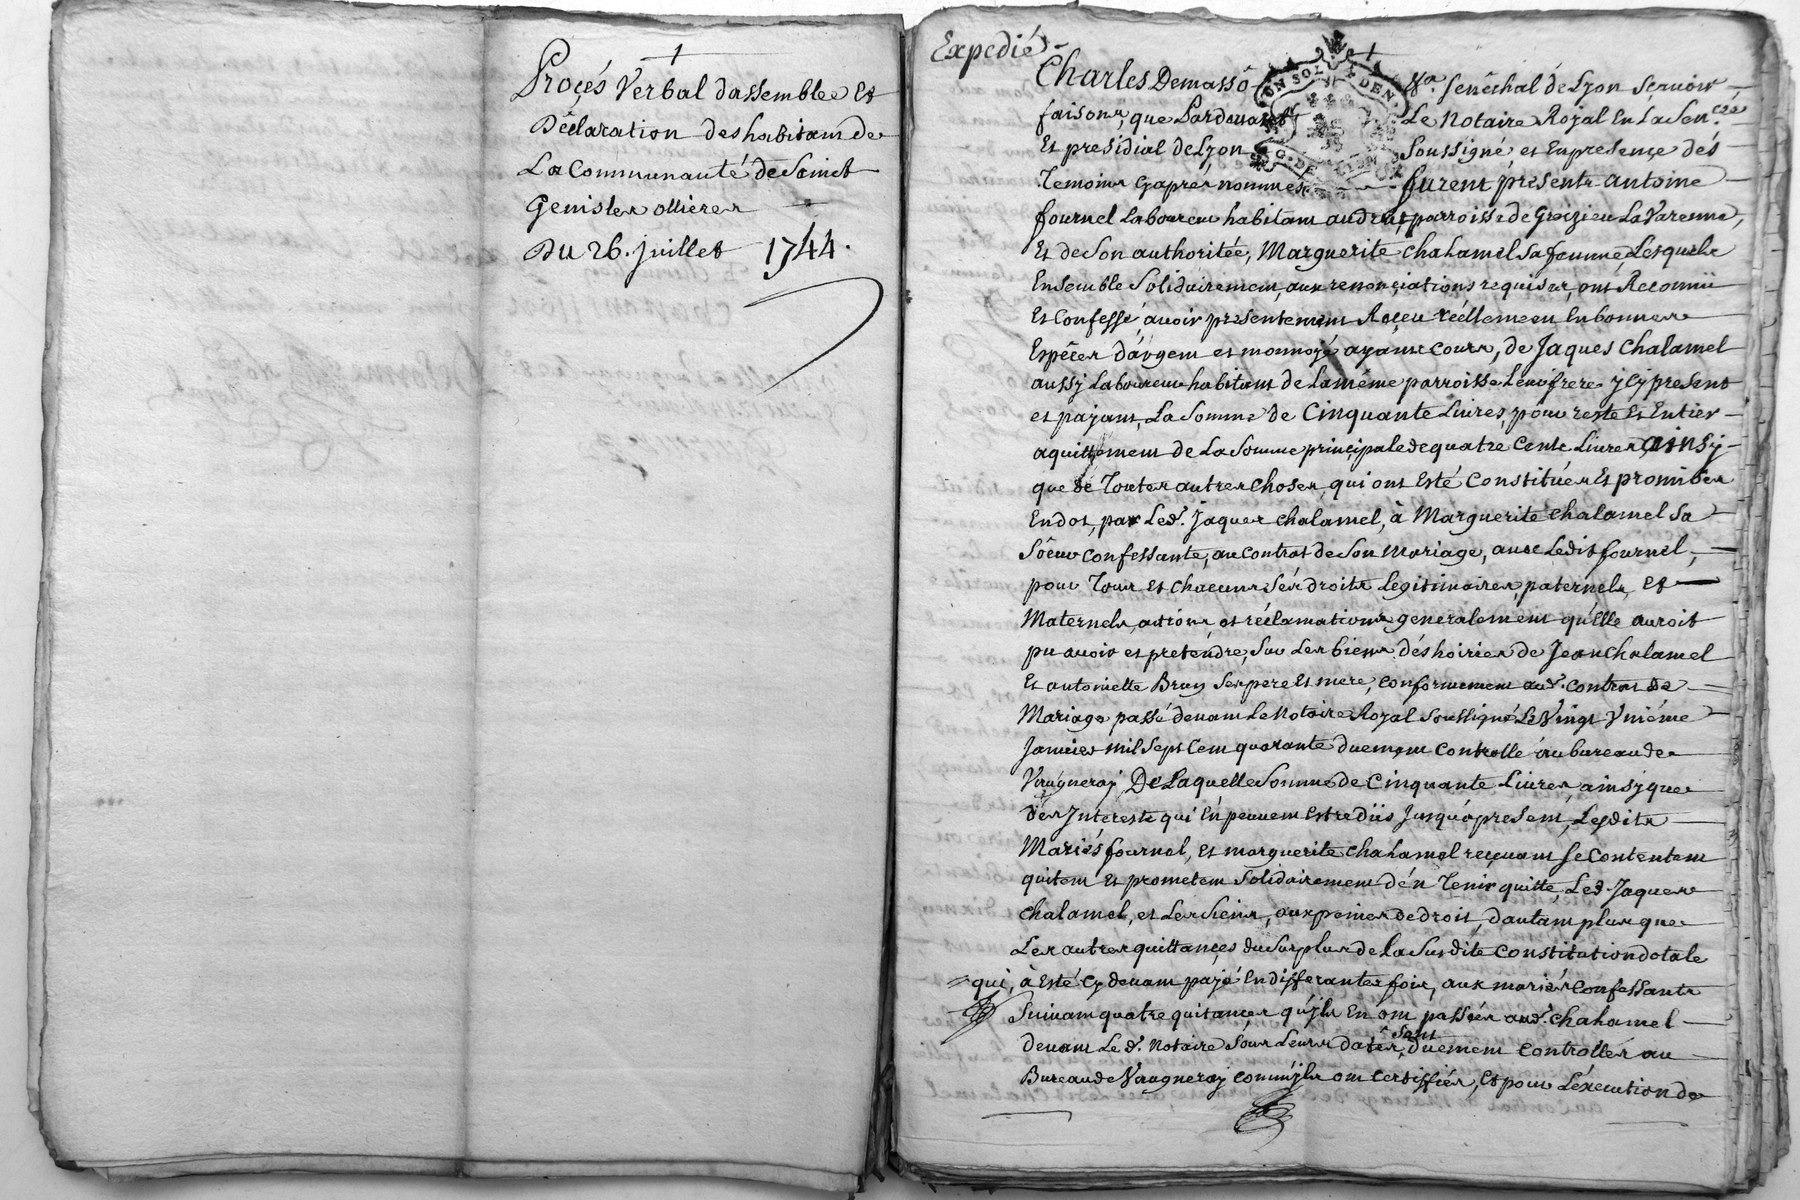 Proçés Verbal dassemblee Et
Déclaration des habitans de
La Communauté de Sainct
Genis les ollieres
Du 26. Juillet 1744.
Expedié
Charles Demasso Sénéchal de Lyon Sçavoir
faisons, que Pardevant Le Notaire Royal En La Sen.cée
Et presidial de Lyon Soussigné, et En présençe dés
Temoins cyaprés nommés furent presents antoine
fournel Laboureur habitant parroisse de Grézieu La Varenne,
Et de Son authoritée, Marguerite Chalamel Sa femme, Lesquels
Ensemble Solidairement, aux renonçiations requises, ont Reconnü
Et Confessé avoir presentement Reçeu réellement En bonnes
Espéces d'argent et monnoye ayant cours, de Jaques Chalamel
aussy Laboureur habitant de La méme parroisse Leur frere ycy present
et payant, La Somme de Cinquante Livres, pour reste Et Entier
aquittement de La Somme prinçipale de quatre Cents Livres ainsy
que de Toutes autres choses, qui ont Esté Constituées Et promises
En dot, par Led. Jaques Chalamel, à Marguerite Chalamel Sa
Soeur Confessante, au Contrat de Son Mariage, avec Ledit fournel,
pour Tous Et chacuns Sés droits Legitimaires, paternels, Et
Maternels, actions, et réclamations generalement qu'Elle auroit
pu avoir et pretendre, Sur Les biens, dés hoiries de Jean Chalamel
Et antoinette Brun Ses pere Et mere, conformement aud. Contrat de
Mariage passé devant Le Notaire Royal Soussigné Le Vingt Vniéme
Janvier mil Sept Cent quarante duement Controllé au bureau de
Vaugneray, De Laquelle Somme de Cinquante Livres, ainsy que
dés Interests qui En peuvent Estre dûs Jusqu'à présent, Lesdits
Mariés fournel, Et marguerite Chalamel reçevants Se Contentent
quitent Et prometent Solidairement d'én Tenir quitte, Led. Jaques
Chalamel, et Les Siens, aux peines de droit, d'autant plus que
Les autres quittançes du Surplus de La Susdite Constitution dotale
qui, à Esté Cy devant payé En differantes fois, aux mariés Confessants
Suivant quatre quitançes qu'jls En ont passées aud. Chalamel
devant Le d. Notaire Sous Leurs dates, duement Controllées au
Bureau de Vaugneray comm'jls ont Certiffiés, Et pour L'éxecution de